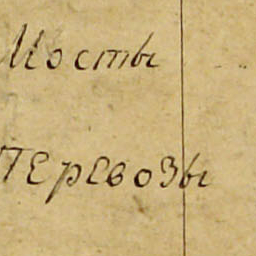 Мосты
Перевозы